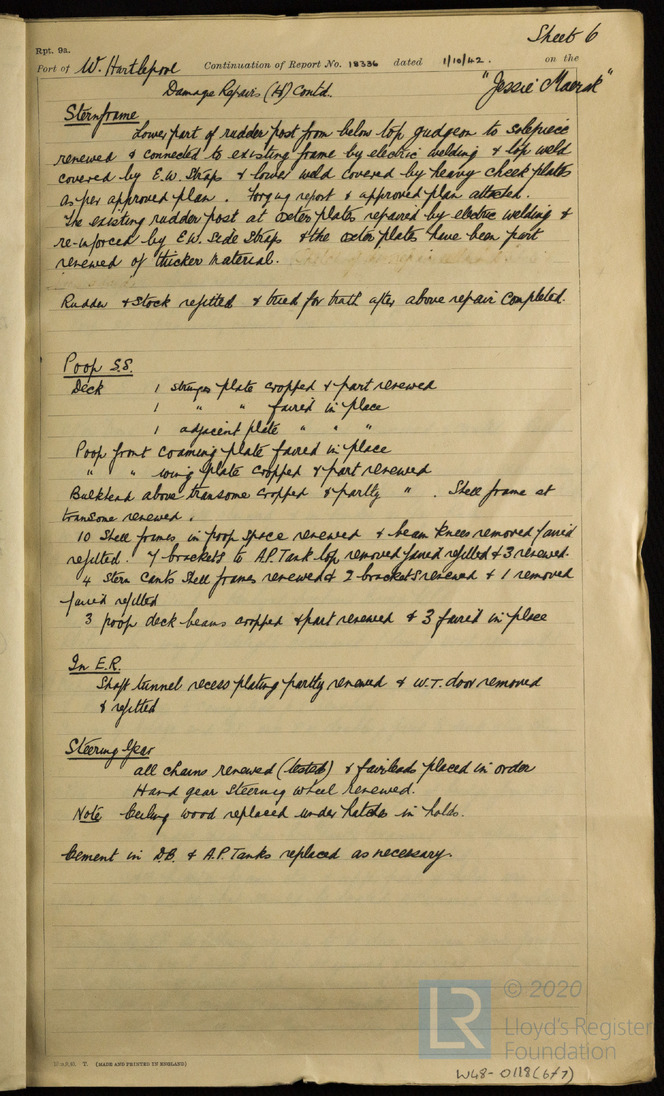 Sheet 6
Rpt. 9a.
Port of W. Hartlepool Continuation of Report No. 18336 dated 1/10/42. on the
Damage Repairs Contd. "Jessie Maersk"
Sternframe
Lower part of rudder post from below top gudgeon to solepiece
renewed & connected to existing frame by electric welding & top weld
covered by E.W. Straps & lower weld covered by heavy cheek plates
as per approved plan. Forging report & approved plan attached.
The existing rudder post at oxter plates repaired by electric welding &
re-inforced by E.W. Side Straps & the oxter plates have been part
renewed of thicker material.
Rudder & Stock refitted & tried for truth after above repair completed.
Poop S.S.
Deck 1 stringer plate cropped & part renewed
1 " " faired in place
1 adjacent plate " " "
Poop front coaming plate faired in place
" " wing plate cropped & part renewed
Bulkhead above transome cropped & partly " . Shell frame at
transome renewed.
10 Shell frames in poop space renewed & beam knees removed faired
refitted. 7 brackets to A.P. Tank top removed faired refitted & 3 renewed.
4 Stern cants Shell frames renewed & 2 brackets renewed & 1 removed
faired refitted
3 poop deck beams cropped & part renewed & 3 faired in place
In E.R.
Shaft tunnel recess plating partly renewed & W.T. door removed
& refitted
Steering Gear
all chains renewed (tested) & fairleads placed in order
Hand gear Steering wheel renewed.
Note Ceiling wood replaced under hatches in holds.
Cement in D.B. & A.P. Tanks replaced as necessary.
T. (MADE AND PRINTED IN ENGLAND)
LR © 2020
Lloyd's Register
Foundation
W48-0118(6of7)